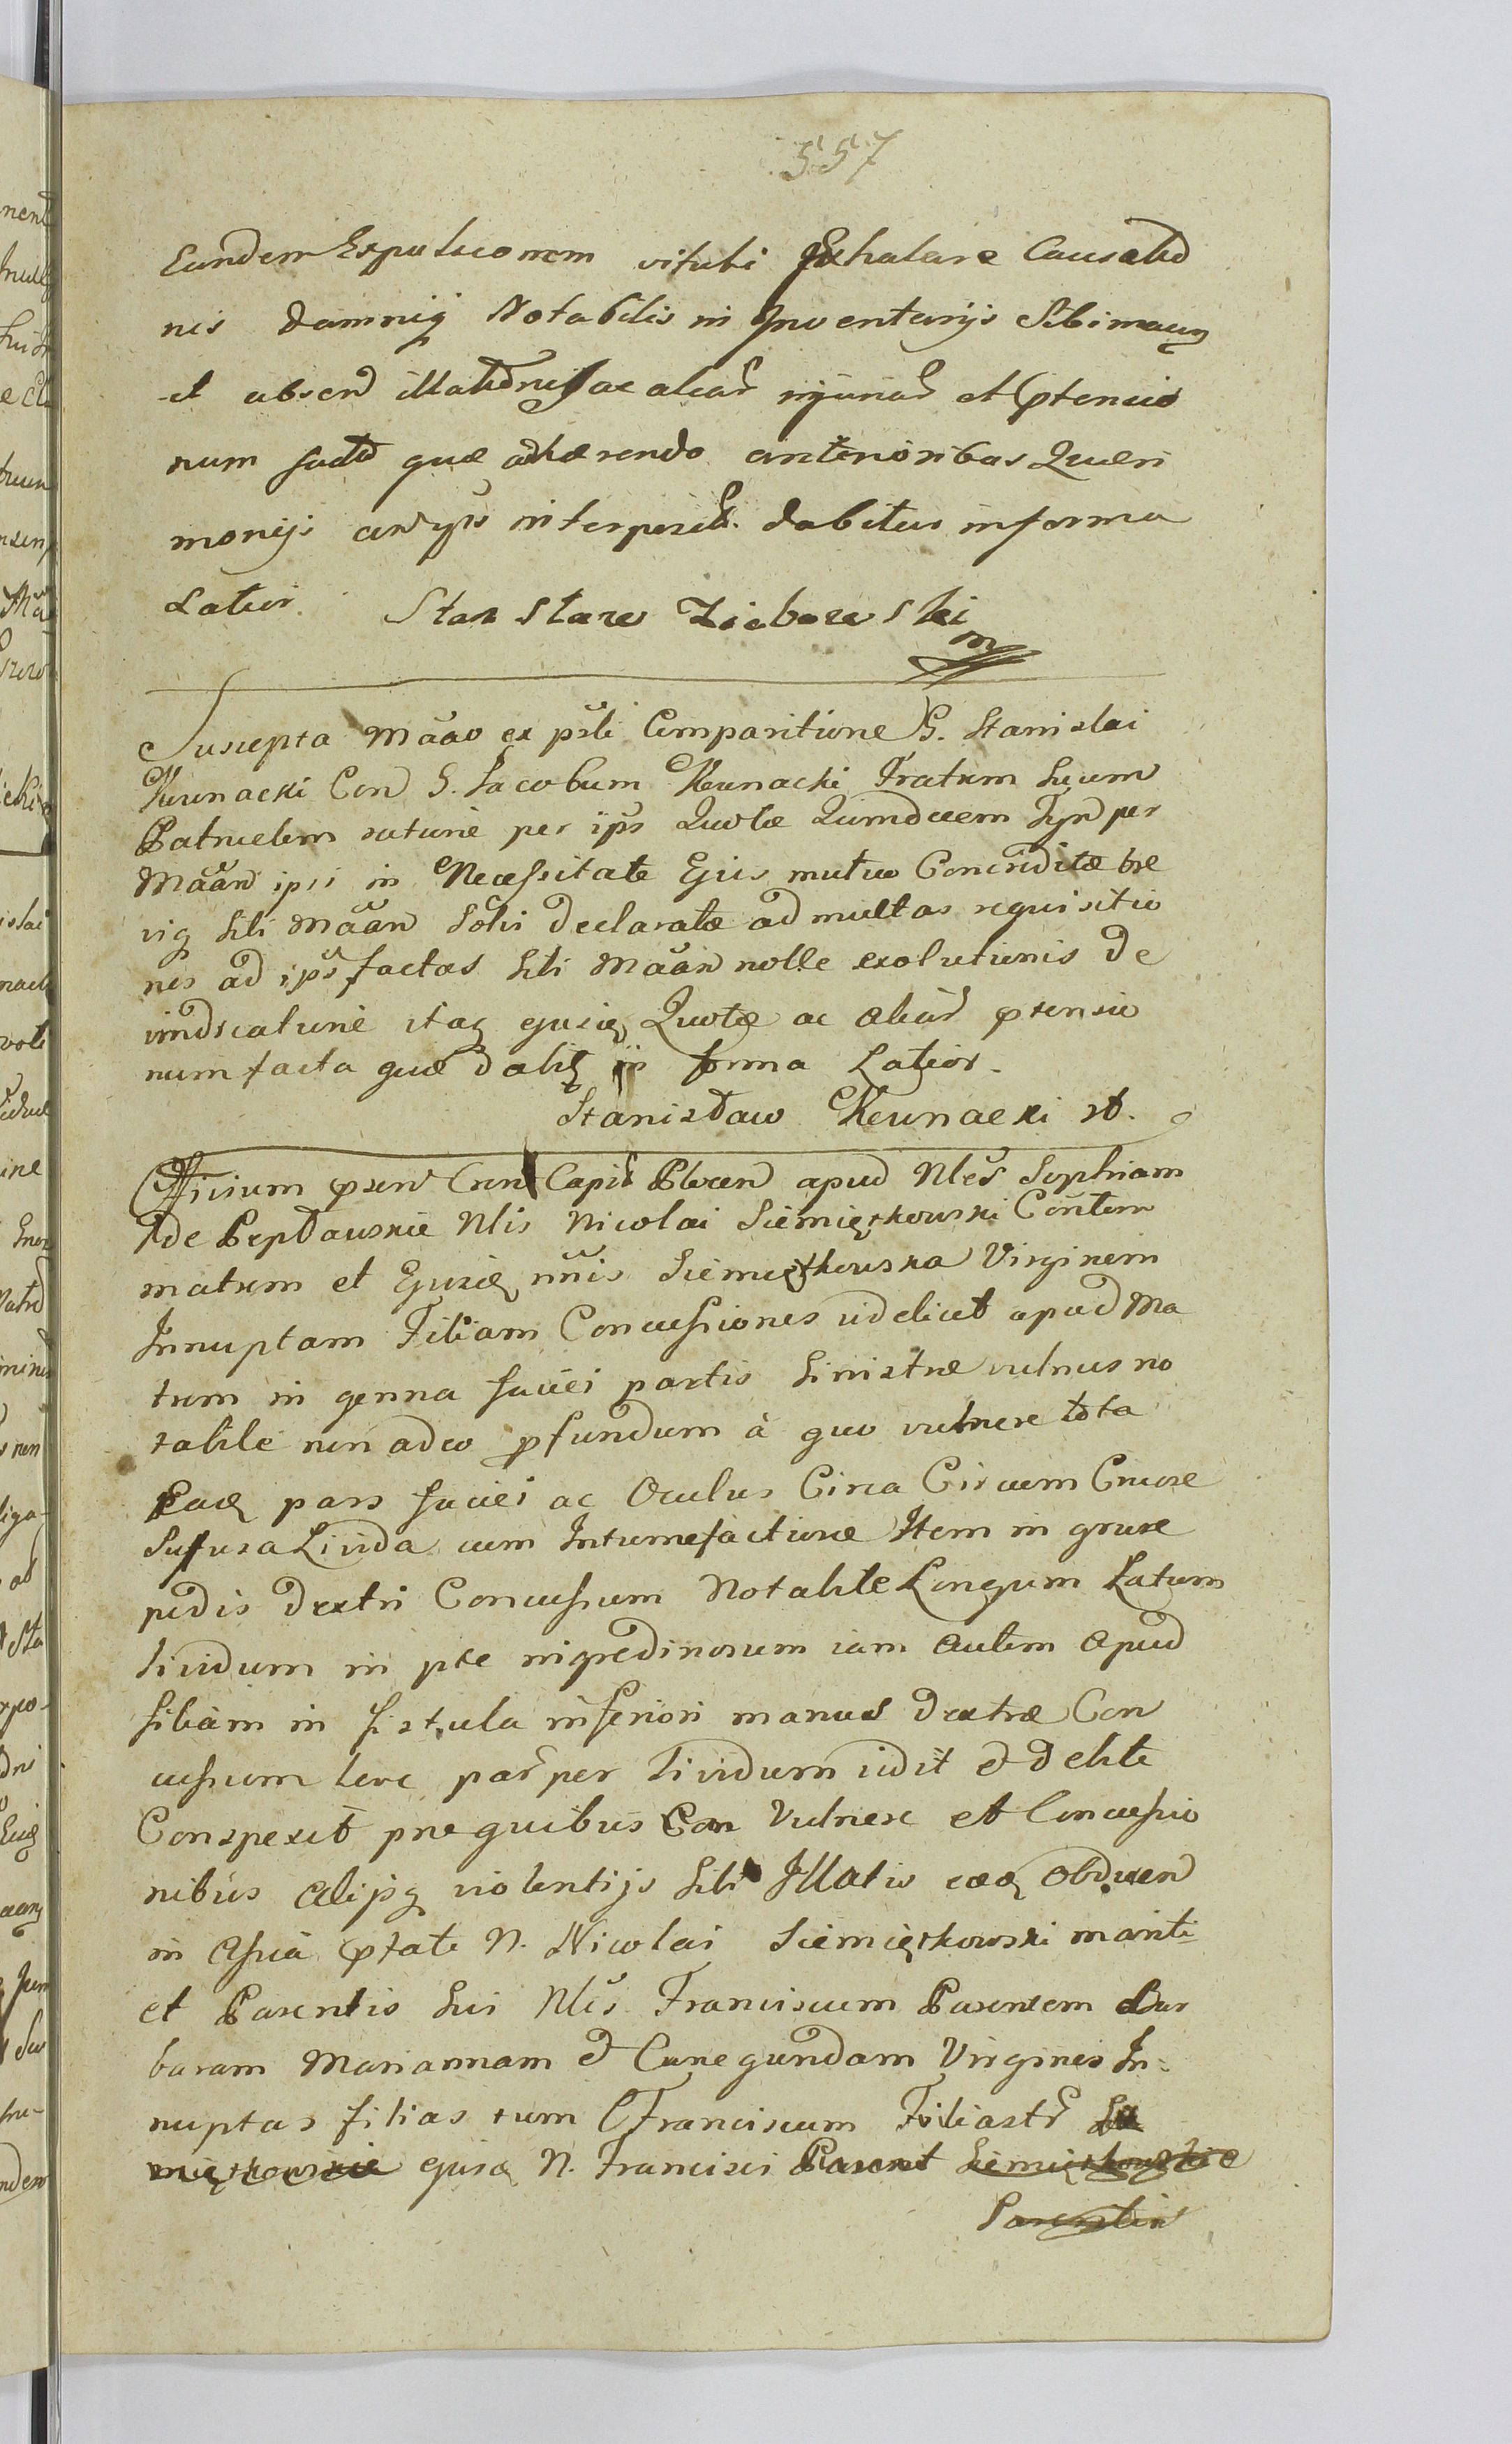 557
Eandem Expulsionem vituli Exhalare Causatio
nis damniq Notabilis in Inventarijs Sibimacq
et absen illationis ac aliar injuriar et ptensio
num facto quæ adhærendo anterioribus Quæri
monijs interposit. dabitur in forma
Latior. Stanisław Ziebowski
mp
Suscepta Mãao ex psti Comparitione G. Stanislai
Kurnacki Con G. Jacobum Kurnacki Fratrem Suum
Patruelem ratione per ips Quotæ Quindecem Tyn per
Mãan ipsi in Necessitate Ejus mutuo Concreditæ bre
viq sibi Mãan Solvi declaratæ ad multas requisitio
nes ad ips factas sibi Mãan nolle exolutionis De
vindicatione itaq ejusdq Quotæ ac aliar ptensio
num facta quæ dabit in forma Latior.
Stanisław Kurnacki st.
Officium psen Cren Capit Plocen apud Nles Sophiam
de Peplauskie Nlis Nicolai Siemiętkowski Contem
matrem et Ejusdq nnis Siemiętkowska Virginem
Innuptam Filiam Concussiones videlicet apud Ma
trem in genna faciei partis Sinistræ vulnus no
tabile non adeo pfundum à quo vulnere tota
Eadq pars faciei ac Oculus Circa Circum Cruore
Suffusa Livida cum Intumefactione Item in grure
pedis dextri Concussum Notabile Longum Latum
lividum in pte nigredinosum iam autem apud
filiam in fistula inferiori manus dextræ Con
cussum leve par per lividum vidit & debite
Conspexit pne quibus Con Vulnere et Concussio
nibus alijsq violentijs sibi Illatis eædq Obducen
in assia ptate N. Nicolai Siemiętkowski mariti
et Parentis Sui Nles Franciscum Parentem Bar
baram Mariannam & Cunegundam Virgines In-
nuptas filias tum Franciscum Filiastr Sie
miętkowskie ejusdq N. Francisci Parent Siemiętkowskie
Parentis